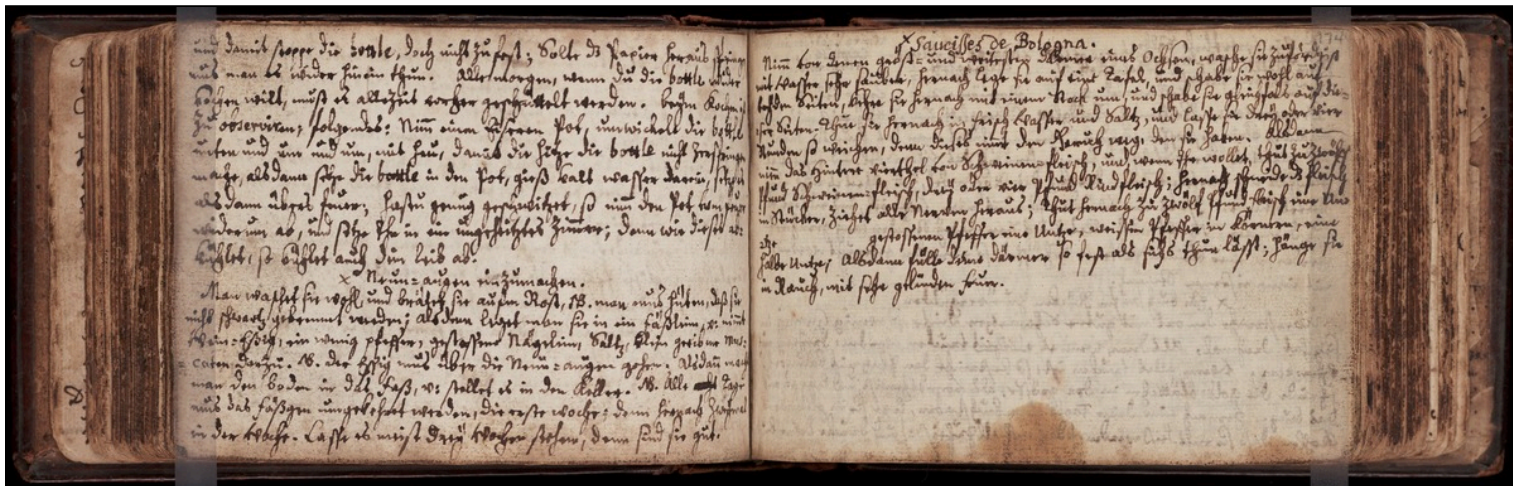 und damit stoppe die bottle, doch nicht zu fest; Solte dz Papier heraus springen
mus man es wider hinein thun. Alle morgen, wenn du die bottle wider
kochen wilt, muß es allezeit vorher geschüttelt werden. beym Kochen ist
zu observiren, folgendes: Nim einen Eiseren Pot, umwickele die bottle
unten und um und um, mit heu, damit die hitze die bottle nicht zerspringen
mache, alsdann setze die bottle in den Pot, gieß kalt wasser darein,
alsdann übers feuer; hastu genug geschwitzet, so nim den Pot vom feuer
widerum ab, und setze Ihn in ein ungeheitztes Zimmer; denn wie dieses ab-
kühlet, so kühlet auch dein leib ab.
x Neun-augen einzumachen.
Man waschet sie wohl, und brätet sie auf'm Rost, NB. man mus hüten, daß sie
nicht schwartz gebrennt werden; alsdenn leget man sie in ein fäßlein, v: nimt
Wein-Eßig, ein wenig pfeffer, gestossene Nägelein, Saltz, klein geribene Mus-
caten darzu. NB. der Essig mus über die Neun-augen gehen. Alsdan mache
man den boden in das faß, v: stellet es in den Keller. NB. Alle Tage
mus das fäßgen umgekehrt werden, die erste woche; denn hernach zweymal
in der woche. Lasse es meist drey wochen stehen, denn sind sie gut.
x Saucisses de Bologna.
Nim von denen groß- und weitesten därmer eines Ochsen, wasche sie
mit wasser sehr sauber, hernach lege sie auf eine Tafel, und schabe sie wohl auf
beyden Seiten, kehre sie hernach mit einem Stock um, und schabe sie gleichfals auf die-
ser Seiten. Thue sie hernach in frisch wasser und Saltz, und lasse sie drey oder vier
Stunden so weichen, denn dieses nimt den Geruch weg, den sie haben. Alsdann
nim das hintere vierthel von Schweinenfleisch, und wenn Ihr wollet, thut zu zwölff
Pfund Schweinenfleisch, drey oder vier Pfund Rindfleisch; hernach schneide dz fleisch
in Stücker, ziehet alle Nerven heraus; thut hernach zu zwölf Pfund fleisch eine Un-
tze gestossenen Pfeffer eine Untze, weissen Pfeffer in Körneren, eine
halbe Untze; Alsdann fülle deine därmer so fest als sichs thun läßt; hänge sie
in Rauch, mit sehr gelinden feuer.